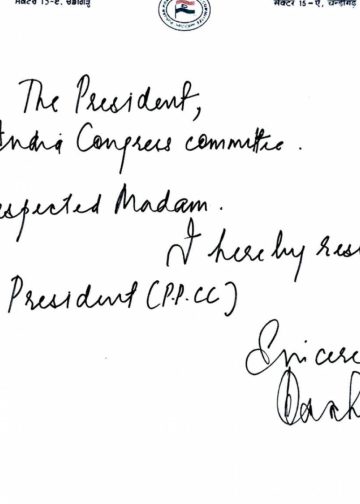 ਸੈਕਟਰ 15-ਏ, ਚੰਡੀਗੜ੍ਹ
सेक्टर 15-ए, चन्डीगढ़
The President,
India Congress committee.
espected Madam.
I hereby resi
President (P.P.CC)
Sincere